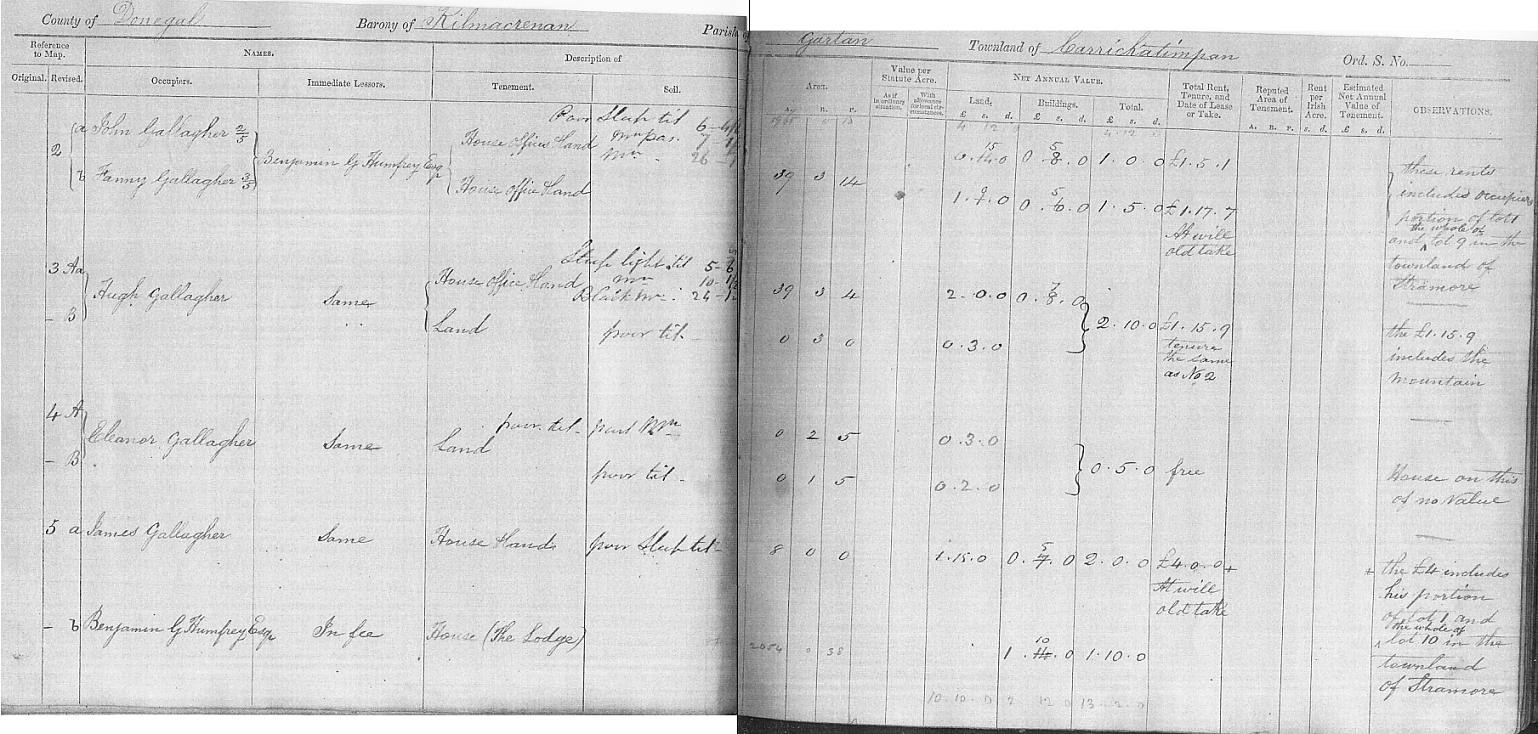 County of Donegal Barony of Kilmacrenan Parish of Gartan Townland of Carrickatimpan Ord. S. No.
Reference to Map. NAMES. Description of
Original. Revised. Occupiers. Immediate Lessors. Tenement. Soil.
Area. Value per Statute Acre. NET ANNUAL VALUE. Total Rent, Tenure, and Date of Lease or Take. Reputed Area of Tenement. Rent per Irish Acre. Estimated Net Annual Value of Tenement. OBSERVATIONS.
As if in ordinary situation. With allowance for local circumstances. Land. Buildings. Total.
£ s. d. £ s. d. A. R. P. s. d. £ s. d.
4 12 0 4 12 0
Poor Steep til 6
2 { a John Gallagher 2/5 House Offices Land Mn pas. 7 0. 14 15 .0 0. 8 5 .0 1. 0. 0 £1. 5. 1
Benjamin G Humfrey Esqr Mn 26
39 3 14
b Fanny Gallagher 3/5 House Office Land 1. 9 .0 0. 6 5 .0 1. 5. 0 £1. 17. 7
At will
old take
these rents
includes occupiers
portion of lot 1
and ^ the whole of lot 9 in the
townland of
Stramore
Steep light til 5
3 Aa Hugh Gallagher Same House Office Land Mn 10
Black Mn 24
39 3 4 2. 0. 0 0. 8 7 .0
– B Land poor til 0 3 0 0. 3. 0
2. 10. 0 £1. 15. 9
tenure
the same
as No 2
the £1. 15. 9
includes the
mountain
4 A Eleanor Gallagher Same Land poor til part Mn 0 2 5 0. 3. 0
– B poor til 0 1 5 0. 2. 0
0. 5. 0 free
House on this
of no Value
5 a James Gallagher Same House & Land poor Steep til 8 0 0 1. 15. 0 0. 7 5 .0 2. 0. 0 £4. 0. 0 +
At will
old take
+ the £4 includes
his portion
of lot 1 and
^ the whole of lot 10 in the
townland
of Stramore
– b Benjamin G Humfrey Esqr In fee House (The Lodge) 1. 10 .0 1. 10. 0
2054 0 38
10. 10. 0 2 12 0 13. 2. 0